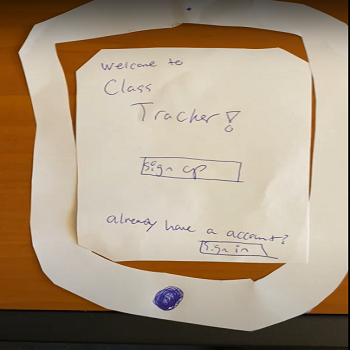 Welcome to
Class
Tracker!
Sign up
already have a account?
Sign in